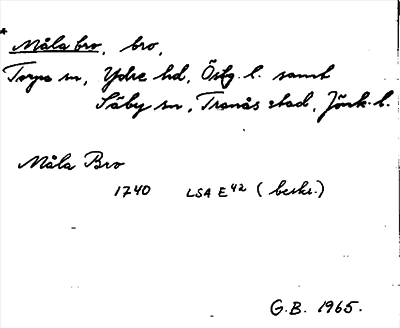 * Måla bro, bro,
Torpa sn, Ydre hd, Östg. l. samt
Säby sn, Tranås stad, Jönk. l.
Måla Bro
1740 LSA E42 (beskr.)
G.B. 1965.